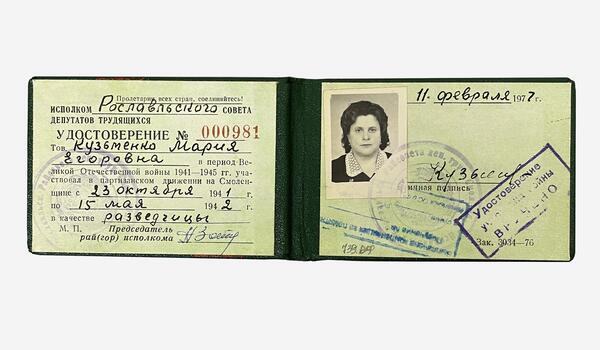 Пролетарии всех стран, соединяйтесь!
ИСПОЛКОМ Рославльского СОВЕТА
ДЕПУТАТОВ ТРУДЯЩИХСЯ
УДОСТОВЕРЕНИЕ № 000981
Тов. Кузьменко Мария
Егоровна в период Ве-
ликой Отечественной войны 1941—1945 гг. уча-
ствовал в партизанском движении на Смолен-
щине с 23 октября 1941 г.
по 15 мая 1942 г.
в качестве разведчицы
М. П. Председатель
рай(гор) исполкома
11 февраля 1977 г.
личная подпись
Удостоверение
войны
ВРУЧЕНО
Зак. 3034—76